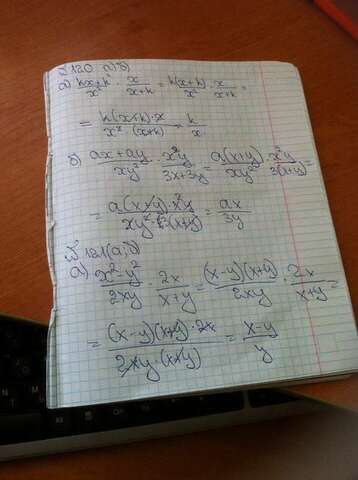 №120 а, б)
а) (kx+k²)/x² · x/(x+k) = k(x+k)/x² · x/(x+k) =
= k(x+k)·x / x²·(x+k) = k/x
б) (ax+ay)/xy² · x²y/(3x+3y) = a(x+y)/xy² · x²y/3(x+y) =
= a(x+y)·x²y / xy²·3(x+y) = ax/3y
№121(а, б)
а) (x²-y²)/2xy · 2x/(x+y) = (x-y)(x+y)/2xy · 2x/(x+y) =
= (x-y)(x+y)·2x / 2xy·(x+y) = (x-y)/y